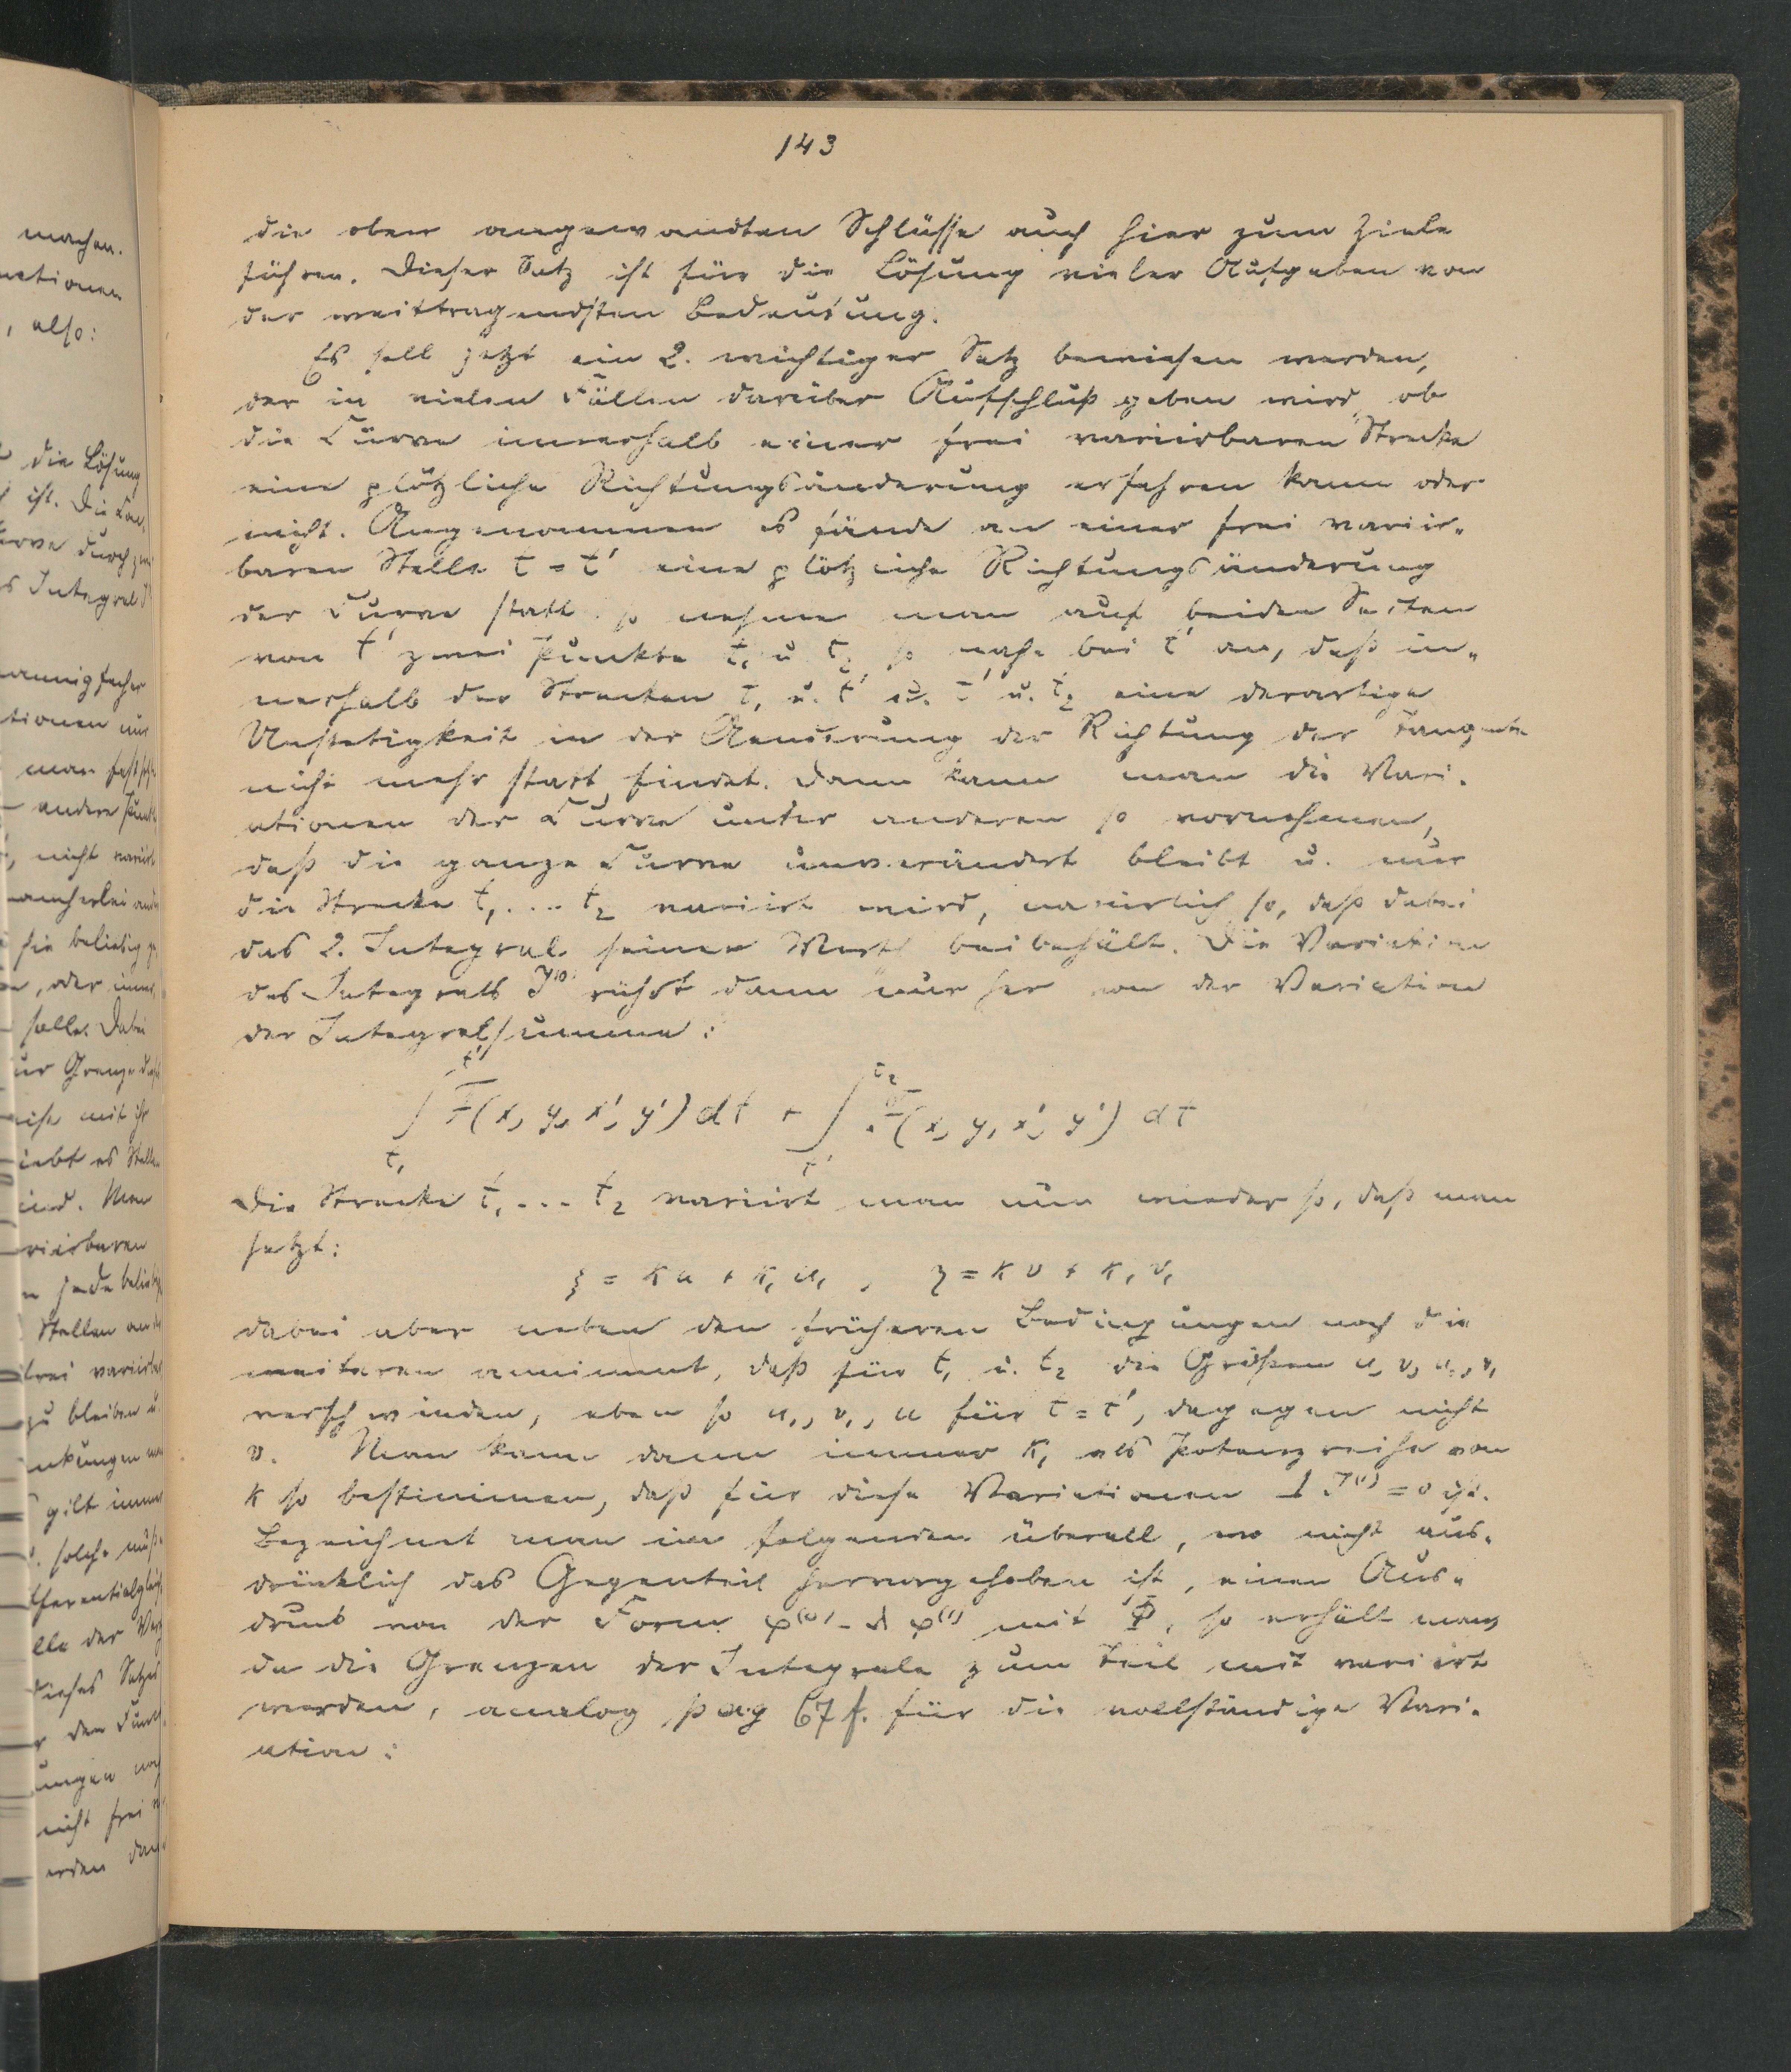 143
die oben angewandten Schlüsse auch hier zum Ziele
führen. Dieser Satz ist für die Lösung vieler Aufgaben von
der weittragendsten Bedeutung.
Es soll jetzt ein 2. wichtiger Satz bewiesen werden,
der in vielen Fällen darüber Aufschluß geben wird, ob
die Curve innerhalb einer frei variirbaren Strecke
eine plötzliche Richtungsänderung erfahren kann oder
nicht. Angenommen es fände an einer frei variir-
baren Stelle t = t' eine plötzliche Richtungsänderung
der Curve statt so nehme man auf beiden Seiten
von t' zwei Punkte t₁ u t₂ so nahe bei t' an, daß in-
nerhalb der Strecken t₁ u. t' u. t' u. t₂ eine derartige
Unstetigkeit in der Aenderung der Richtung der Tangente
nicht mehr statt findet. Dann kann man die Vari-
ationen der Curve unter anderen so vornehmen,
daß die ganze Curve unverändert bleibt u. nur
die Strecke t₁ .... t₂ variirt wird, natürlich so, daß dabei
das 2. Integral seinen Werth beibehält. Die Variation
des Integrals J⁽⁰⁾ rührt dann nur her von der Variation
der Integralsumme:
∫_{t₁}^{t'} F(x, y, x', y') dt + ∫_{t'}^{t₂} F(x, y, x', y') dt
Die Strecke t₁ ... t₂ variirt man nun wieder so, daß man
setzt:
ξ = κu + κ₁u₁, η = κv + κ₁v₁
dabei aber neben den früheren Bedingungen noch die
weiteren annimmt, daß für t₁ u. t₂ die Größen u, v, u₁, v₁
verschwinden, eben so u₁, v₁, u für t = t', dagegen nicht
v. Man kann dann immer κ₁ als Potenzreihe von
κ so bestimmen, daß für diese Variationen Δ J⁽¹⁾ = 0 ist.
Bezeichnet man im folgenden überall, wo nicht aus-
drücklich das Gegenteil hervorgehoben ist, einen Aus-
druck von der Form φ⁽⁰⁾ - λ φ⁽¹⁾ mit Φ, so erhält man,
da die Grenzen der Integrale zum Teil mit variirt
werden, analog pag 67 f. für die vollständige Vari-
ation: